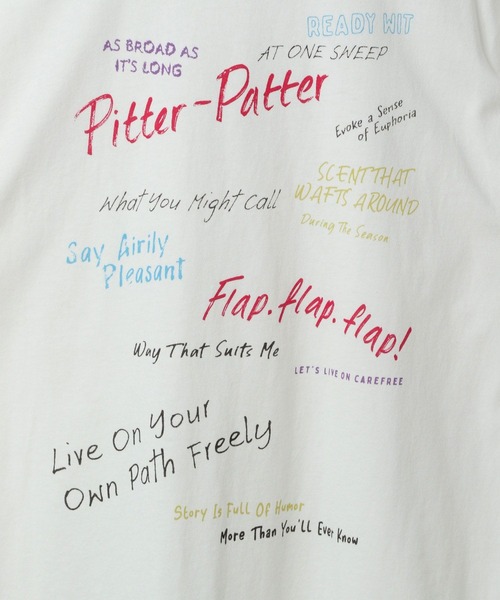 READY WIT
AS BROAD AS
IT'S LONG
AT ONE SWEEP
Pitter-Patter
Evoke a Sense
of Euphoria
SCENT THAT
WAFTS AROUND
During The Season
What You Might Call
Say Airily
Pleasant
Flap.flap.flap!
Way That Suits Me
LET'S LIVE ON CAREFREE
Live On Your
Own Path Freely
Story Is Full Of Humor
More Than You'll Ever Know